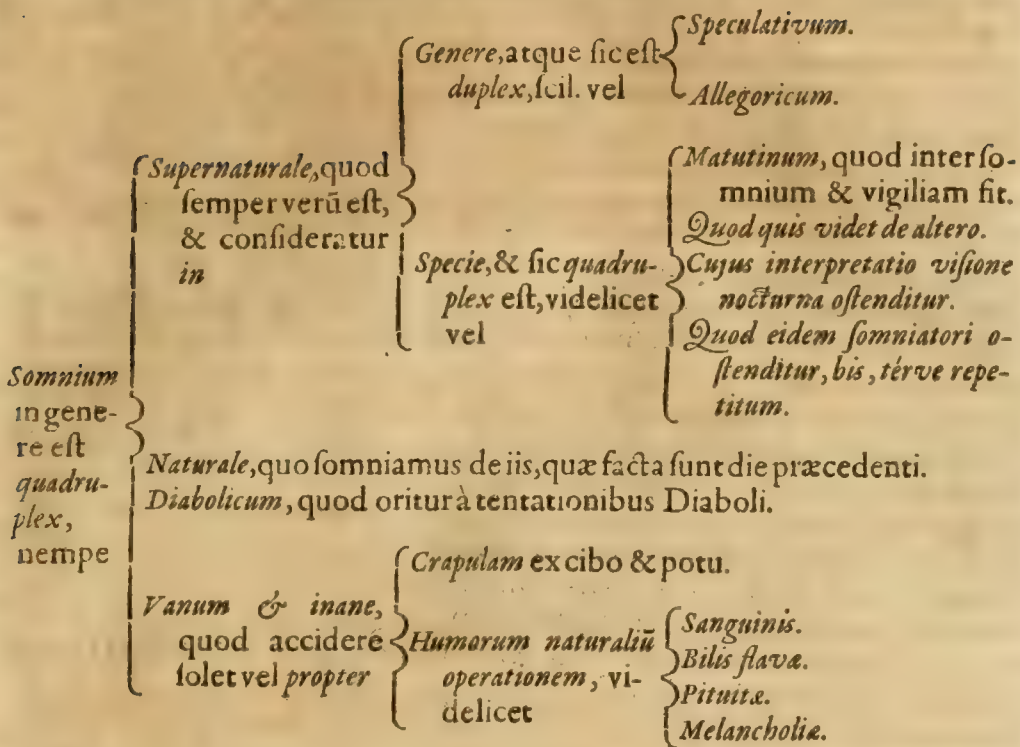 Somnium
in gene-
re est
quadru-
plex,
nempe
Supernaturale, quod
ſemper verũ eſt,
& conſideratur
in
Genere, atque ſic eſt
duplex, ſcil. vel
Speculativum.
Allegoricum.
Specie, & ſic quadru-
plex eſt, videlicet
vel
Matutinum, quod inter ſo-
mnium & vigiliam fit.
Quod quis videt de altero.
Cujus interpretatio viſione
nocturna oſtenditur.
Quod eidem ſomniatori o-
ſtenditur, bis, térve repe-
titum.
Naturale, quo ſomniamus de iis, quæ facta ſunt die præcedenti.
Diabolicum, quod oritur à tentationibus Diaboli.
Vanum & inane,
quod accidere
ſolet vel propter
Crapulam ex cibo & potu.
Humorum naturaliũ
operationem, vi-
delicet
Sanguinis.
Bilis flavæ.
Pituitæ.
Melancholiæ.